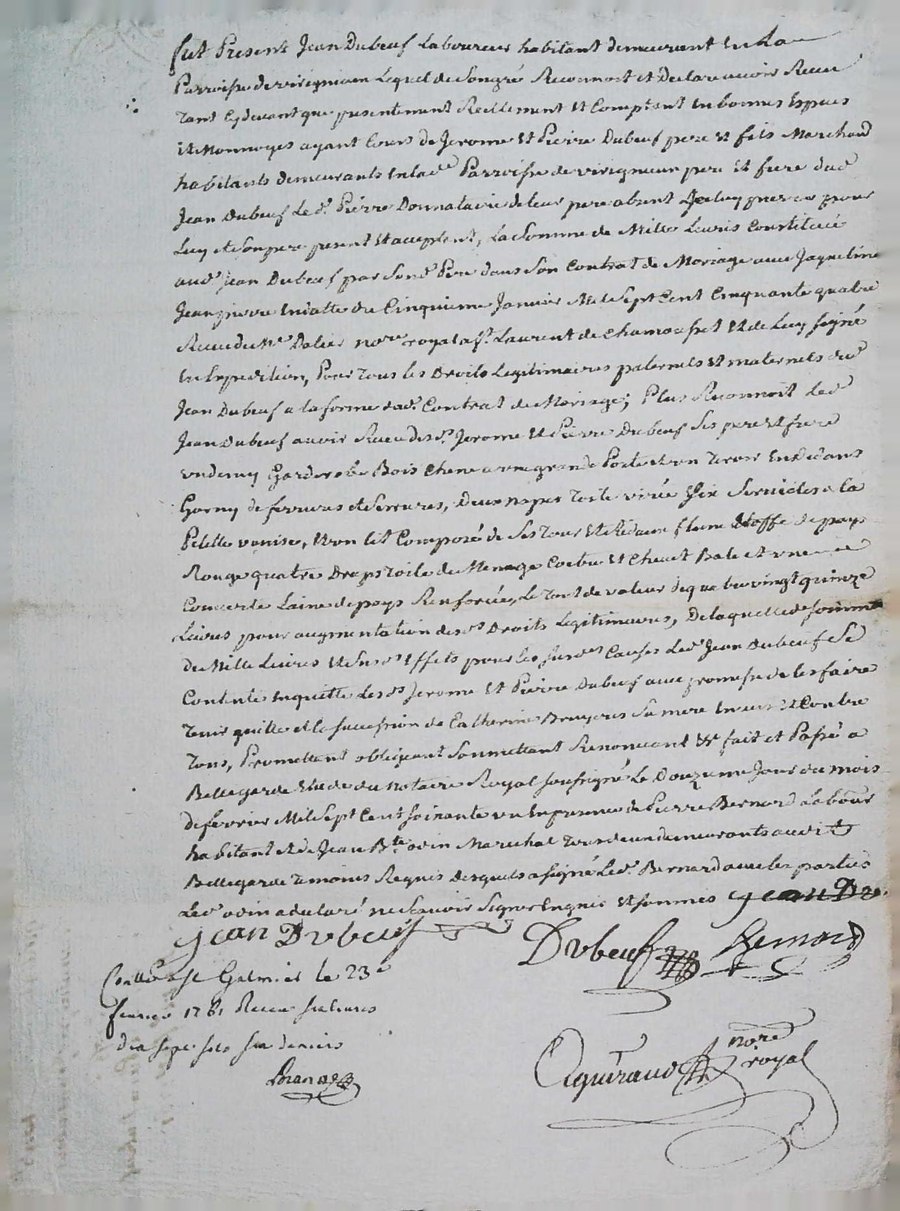 fut Present Jean Dubeuf Laboureur habitant demeurant En La
Parroisse de virigneu Lequel de Son gré Reconnoit et declare avoir Receu
tant Cy devant que presentement Reellement Et Comptant En bonnes Especes
Et Monnoyes ayant Cours de Jerome Et Pierre Dubeuf pere et fils Marchand
habitants demeurants En lad. Parroisse de virigneu pere Et frere dud.
Jean Dubeuf Led. Pierre Donnataire de leur pere absent pour
Luy et Son pere present Et acceptant, La Somme de Mille Livres Constituée
aud. Jean Dubeuf par Sond. Pere dans Son Contrat de Mariage avec Jaqueline
En datte du Cinquieme Janvier Mil Sept Cent Cinquante quatre
Receu de Me. nore. royal a St. Laurent de Chamousset Et de Luy Signé
En Expedition, Pour Tous les Droits Legitimaires paternels Et maternels dud.
Jean Dubeuf a la forme dud. Contrat de Mariage; Plus Reconnoit Led.
Jean Dubeuf avoir Receu desd. Jerome Et Pierre Dubeuf Ses pere Et frere
un demy Garderobe Bois Chene a une grande Porte et un Tiroir En dedans
Garny de ferrures et Serrures, deux napes Toile Six Serviettes a la
Petitte venise, Un lit Composé de Ses tour Et de pays
Rouge quatre Draps toile de Menage Et Chevet Bale et une
de Laine de pays Renforcée, Le Tout de valeur de quatre vingt quinze
Livres pour augmentation desd. Droits Legitimaires, De laquelle d. Somme
de Mille Livres Et Susd. Effets pour les Susd. Causes Led. Jean Dubeuf Se
Contente En quitte Lesd. Jerome Et Pierre Dubeuf avec promesse de les faire
Tenir quitte et la Succession de Catherine Bruyeres Sa mere Envers Et Contre
Tous, Promettant obligeant Soumettant Renonceant &c fait et Passé a
Bellegarde Etude du notaire Royal Soussigné Le Douzieme Jour du mois
de fevrier Mil Sept Cent Soixante un En presence de Pierre Bernard Labour.
habitant Et de Jean Bte. odin Marechal demeurants audit
Bellegarde Temoins Requis Desquels a signé Led. Bernard avec les parties
Led. odin a declaré ne Scavoir Signer Enquis Et Sommés Jean D
Jean Dubeuf
Dubeuf Bernard
Contllé a St Galmier le 23e
fevrier 1761 Receu
dix sept sols six deniers
nore
royal